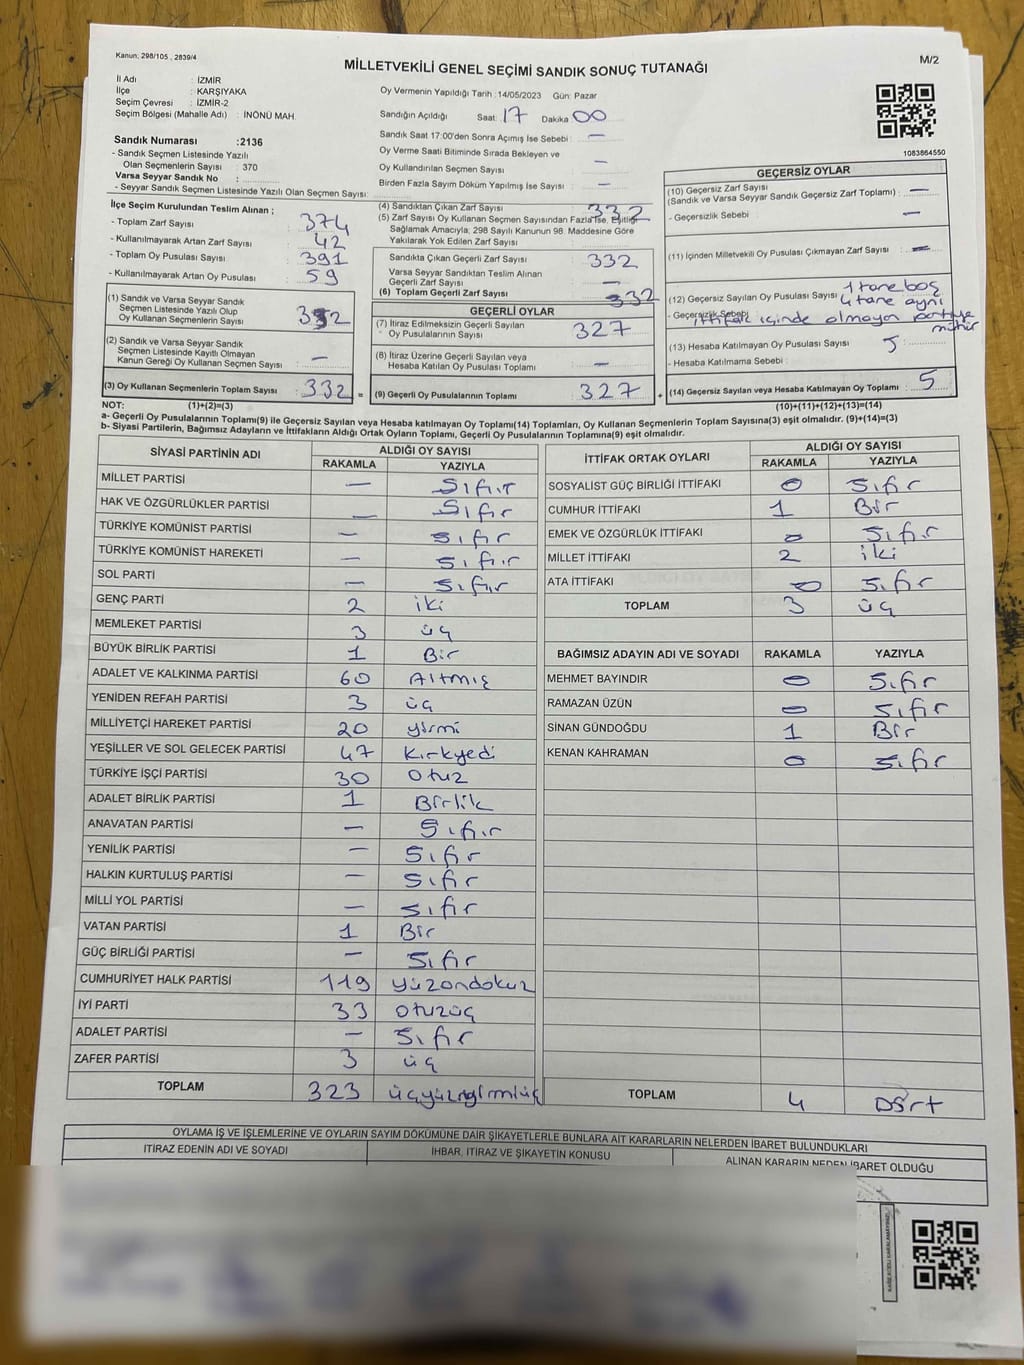 Kanun: 298/105 , 2839/4
M/2
MİLLETVEKİLİ GENEL SEÇİMİ SANDIK SONUÇ TUTANAĞI
İl Adı : İZMİR
İlçe : KARŞIYAKA
Seçim Çevresi : İZMİR-2
Seçim Bölgesi (Mahalle Adı) : İNÖNÜ MAH.
Sandık Numarası :2136
- Sandık Seçmen Listesinde Yazılı
Olan Seçmenlerin Sayısı : 370
Varsa Seyyar Sandık No :
- Seyyar Sandık Seçmen Listesinde Yazılı Olan Seçmen Sayısı:
Oy Vermenin Yapıldığı Tarih :14/05/2023 Gün: Pazar
Sandığın Açıldığı Saat: 17 Dakika 00
Sandık Saat 17:00'den Sonra Açımış İse Sebebi : —
Oy Verme Saati Bitiminde Sırada Bekleyen ve
Oy Kullandırılan Seçmen Sayısı —
Birden Fazla Sayım Döküm Yapılmış İse Sayısı : —
1083864550
İlçe Seçim Kurulundan Teslim Alınan ;
- Toplam Zarf Sayısı : 374
- Kullanılmayarak Artan Zarf Sayısı : 42
- Toplam Oy Pusulası Sayısı : 391
- Kullanılmayarak Artan Oy Pusulası : 59
(1) Sandık ve Varsa Seyyar Sandık
Seçmen Listesinde Yazılı Olup
Oy Kullanan Seçmenlerin Sayısı 332
(2) Sandık ve Varsa Seyyar Sandık
Seçmen Listesinde Kayıtlı Olmayan
Kanun Gereği Oy Kullanan Seçmen Sayısı : —
(3) Oy Kullanan Seçmenlerin Toplam Sayısı : 332 =
(4) Sandıktan Çıkan Zarf Sayısı : 332
(5) Zarf Sayısı Oy Kullanan Seçmen Sayısından Fazla İse, Eşitliği
Sağlamak Amacıyla; 298 Sayılı Kanunun 98. Maddesine Göre
Yakılarak Yok Edilen Zarf Sayısı :
Sandıkta Çıkan Geçerli Zarf Sayısı : 332
Varsa Seyyar Sandıktan Teslim Alınan
Geçerli Zarf Sayısı : —
(6) Toplam Geçerli Zarf Sayısı : 332
GEÇERLİ OYLAR
(7) İtiraz Edilmeksizin Geçerli Sayılan
Oy Pusulalarının Sayısı : 327
(8) İtiraz Üzerine Geçerli Sayılan veya
Hesaba Katılan Oy Pusulası Toplamı : —
(9) Geçerli Oy Pusulalarının Toplamı : 327 +
GEÇERSİZ OYLAR
(10) Geçersiz Zarf Sayısı
(Sandık ve Varsa Seyyar Sandık Geçersiz Zarf Toplamı) : —
- Geçersizlik Sebebi : —
(11) İçinden Milletvekili Oy Pusulası Çıkmayan Zarf Sayısı : —
(12) Geçersiz Sayılan Oy Pusulası Sayısı : 1 tane boş
- Geçersizlik Sebebi : 4 tane aynı
ittifak içinde olmayan partiye
mühür
(13) Hesaba Katılmayan Oy Pusulası Sayısı : 5
- Hesaba Katılmama Sebebi :
(14) Geçersiz Sayılan veya Hesaba Katılmayan Oy Toplamı : 5
NOT: (1)+(2)=(3) (10)+(11)+(12)+(13)=(14)
a- Geçerli Oy Pusulalarının Toplamı(9) ile Geçersiz Sayılan veya Hesaba katılmayan Oy Toplamı(14) Toplamları, Oy Kullanan Seçmenlerin Toplam Sayısına(3) eşit olmalıdır. (9)+(14)=(3)
b- Siyasi Partilerin, Bağımsız Adayların ve İttifakların Aldığı Ortak Oyların Toplamı, Geçerli Oy Pusulalarının Toplamına(9) eşit olmalıdır.
SİYASİ PARTİNİN ADI ALDIĞI OY SAYISI
RAKAMLA YAZIYLA
MİLLET PARTİSİ — Sıfır
HAK VE ÖZGÜRLÜKLER PARTİSİ — Sıfır
TÜRKİYE KOMÜNİST PARTİSİ — Sıfır
TÜRKİYE KOMÜNİST HAREKETİ — Sıfır
SOL PARTİ — Sıfır
GENÇ PARTİ 2 iki
MEMLEKET PARTİSİ 3 üç
BÜYÜK BİRLİK PARTİSİ 1 Bir
ADALET VE KALKINMA PARTİSİ 60 Altmış
YENİDEN REFAH PARTİSİ 3 üç
MİLLİYETÇİ HAREKET PARTİSİ 20 yirmi
YEŞİLLER VE SOL GELECEK PARTİSİ 47 Kırkyedi
TÜRKİYE İŞÇİ PARTİSİ 30 Otuz
ADALET BİRLİK PARTİSİ 1 Birlik
ANAVATAN PARTİSİ — Sıfır
YENİLİK PARTİSİ — Sıfır
HALKIN KURTULUŞ PARTİSİ — Sıfır
MİLLİ YOL PARTİSİ — Sıfır
VATAN PARTİSİ 1 Bir
GÜÇ BİRLİĞİ PARTİSİ — Sıfır
CUMHURİYET HALK PARTİSİ 119 yüzondokuz
İYİ PARTİ 33 otuzüç
ADALET PARTİSİ — Sıfır
ZAFER PARTİSİ 3 üç
TOPLAM 323 üçyüzyirmiüç
İTTİFAK ORTAK OYLARI ALDIĞI OY SAYISI
RAKAMLA YAZIYLA
SOSYALIST GÜÇ BİRLİĞİ İTTİFAKI 0 Sıfır
CUMHUR İTTİFAKI 1 Bir
EMEK VE ÖZGÜRLÜK İTTİFAKI 0 Sıfır
MİLLET İTTİFAKI 2 iki
ATA İTTİFAKI 0 Sıfır
TOPLAM 3 üç
BAĞIMSIZ ADAYIN ADI VE SOYADI RAKAMLA YAZIYLA
MEHMET BAYINDIR 0 Sıfır
RAMAZAN ÜZÜN 0 Sıfır
SİNAN GÜNDOĞDU 1 Bir
KENAN KAHRAMAN 0 Sıfır
TOPLAM 4 Dört
OYLAMA İŞ VE İŞLEMLERİNE VE OYLARIN SAYIM DÖKÜMÜNE DAİR ŞİKAYETLERLE BUNLARA AİT KARARLARIN NELERDEN İBARET BULUNDUKLARI
İTİRAZ EDENİN ADI VE SOYADI İHBAR, İTİRAZ VE ŞİKAYETİN KONUSU ALINAN KARARIN NEDEN İBARET OLDUĞU